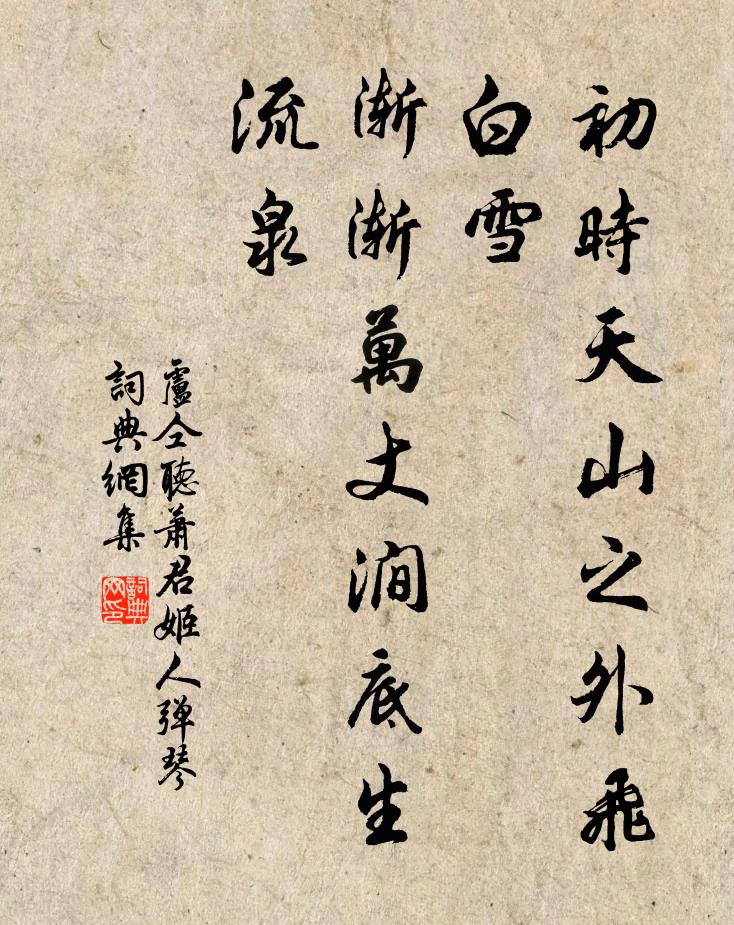 初時天山之外飛
白雪
漸漸萬丈澗底生
流泉
盧仝聽蕭君姬人彈琴
詞典網集
詞典
网印